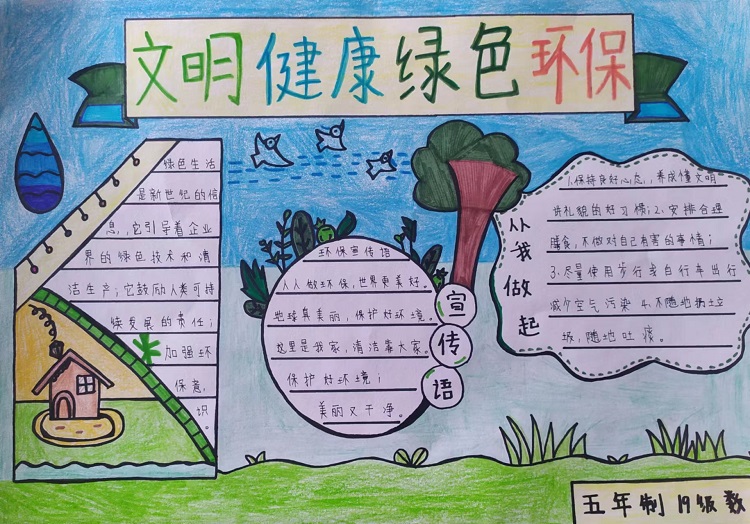 文明健康绿色环保
绿色生活
是新世纪的信
息,它引导着企业
界的绿色技术和清
洁生产;它鼓励人类可持
续发展的责任;
加强环
保意,
识。
环保宣传语
人人做环保,世界更美好。
地球真美丽,保护好环境。
这里是我家,清洁靠大家。
保护好环境;
美丽又干净。
宣传语
从我做起
1.保持良好心态,养成懂文明
讲礼貌的好习惯;2、安排合理
膳食,不做对自己有害的事情;
3.尽量使用步行或自行车出行
减少空气污染4.不随地扔垃
圾,随地吐痰。
五年制19级数